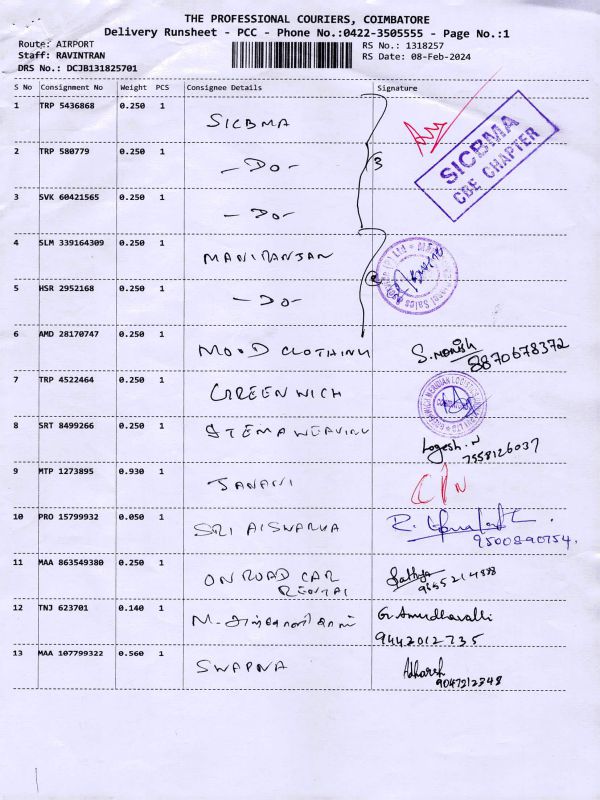 THE PROFESSIONAL COURIERS, COIMBATORE
Delivery Runsheet - PCC - Phone No.:0422-3505555 - Page No.:1
Route: AIRPORT
RS No.: 1318257
Staff: RAVINTRAN
RS Date: 08-Feb-2024
DRS No.: DCJB131825701
S No Consignment No Weight PCS Consignee Details Signature
1 TRP 5436868 0.250 1 SICBMA
SICBMA
CBE CHAPTER
2 TRP 580779 0.250 1 -DO- 3
3 SVK 60421565 0.250 1 -DO-
4 SLM 339164309 0.250 1 MANIRANJAN
5 HSR 2952168 0.250 1 -DO-
6 AMD 28170747 0.250 1 MOOD CLOTHING S. Monish
8870678372
7 TRP 4522464 0.250 1 GREENWICH
8 SRT 8499266 0.250 1 STEMA WEAVING Logesh.N
7558126037
9 MTP 1273895 0.930 1 JANANI
10 PRO 15799932 0.050 1 SRI AISWARYA
9500890754.
11 MAA 863549380 0.250 1 ON ROAD CAR
RENTAL Sathya
12 TNJ 623701 0.140 1 M. G. Amudhavalli
9442012735
13 MAA 107799322 0.560 1 SWAPNA Adharsh
9047212348